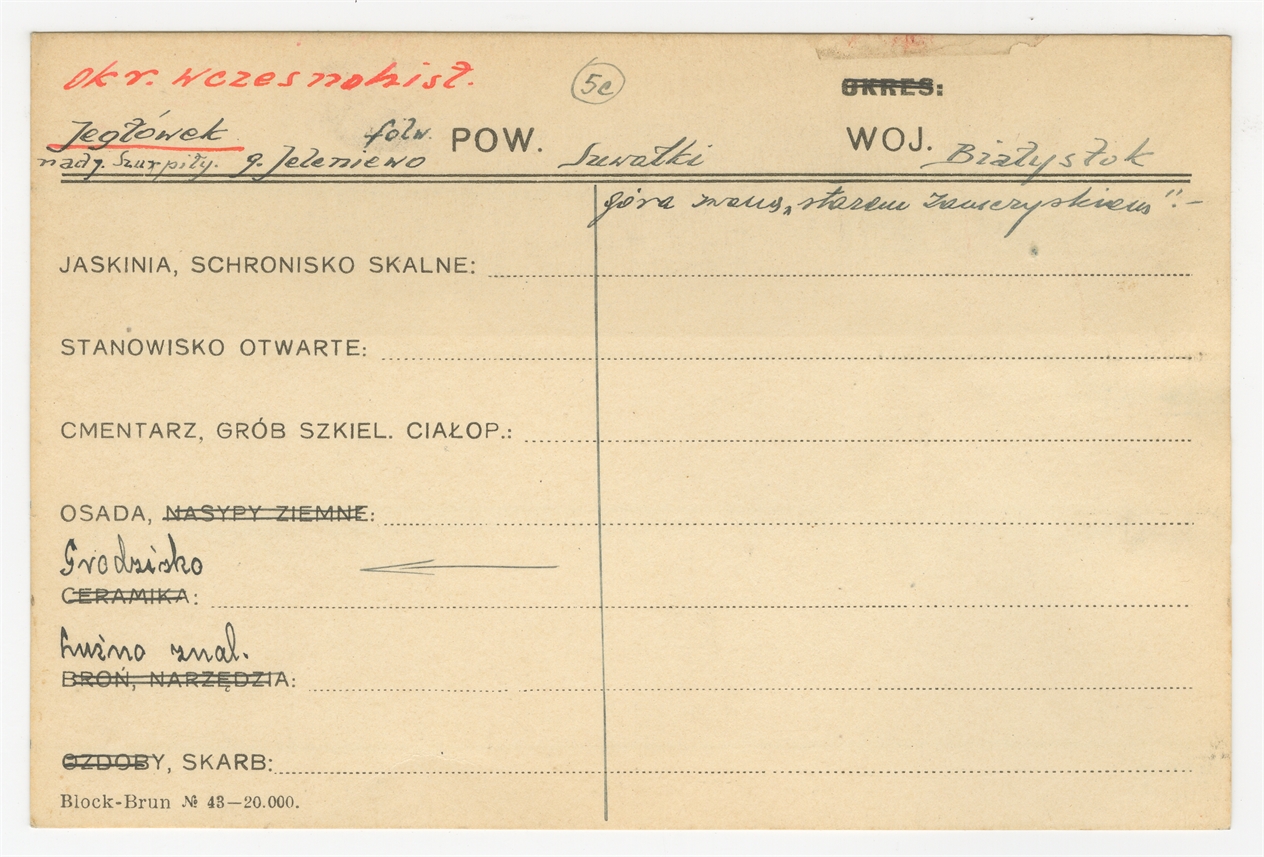 okr. wczesnohist. 5c OKRES:
Jegłówek folw. POW. Suwałki WOJ. Białystok
nad j. Szurpiły. g. Jeleniewo
góra zwana „starem zamczyskiem":-
JASKINIA, SCHRONISKO SKALNE:
STANOWISKO OTWARTE:
CMENTARZ, GRÓB SZKIEL. CIAŁOP.:
OSADA, NASYPY ZIEMNE:
Grodzisko
CERAMIKA:
Luźno znal.
BROŃ, NARZĘDZIA:
OZDOBY, SKARB:
Block-Brun № 43—20.000.